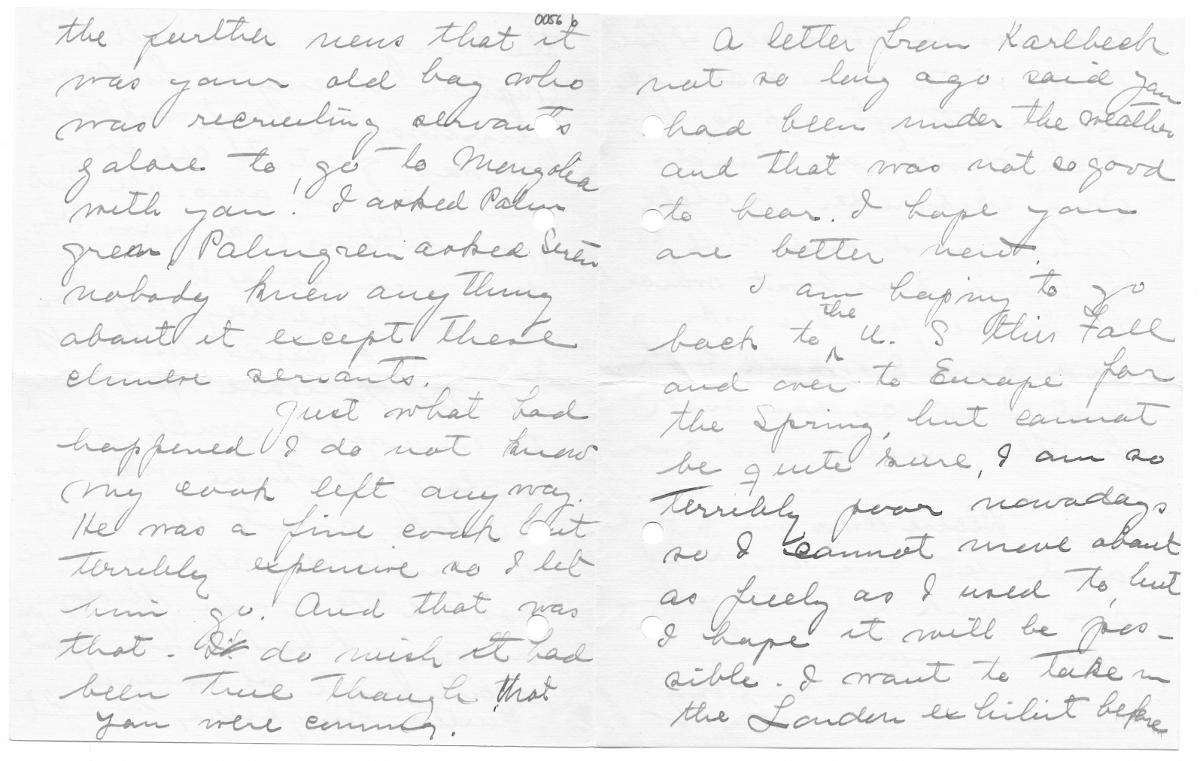 0056 b
the further news that it
was your old boy who
was recruiting servants
galore to go to Mongolia
with you! I asked Palm
gren, Palmgren asked Sirén
nobody knew anything
about it except these
chinese servants.
Just what had
happened I do not know
my cook left anyway.
He was a fine cook but
terribly expensive so I let
him go. And that was
that. I do wish it had
been true though that
you were coming.
A letter from Karlbeck
not so long ago said you
had been under the weather
and that was not so good
to hear. I hope you
are better now.
I am hoping to go
back to the U. S this Fall
and over to Europe for
the Spring, but cannot
be quite sure, I am so
terribly poor nowadays
so I cannot move about
as freely as I used to, but
I hope it will be pos-
sible. I want to take in
the London exhibit before